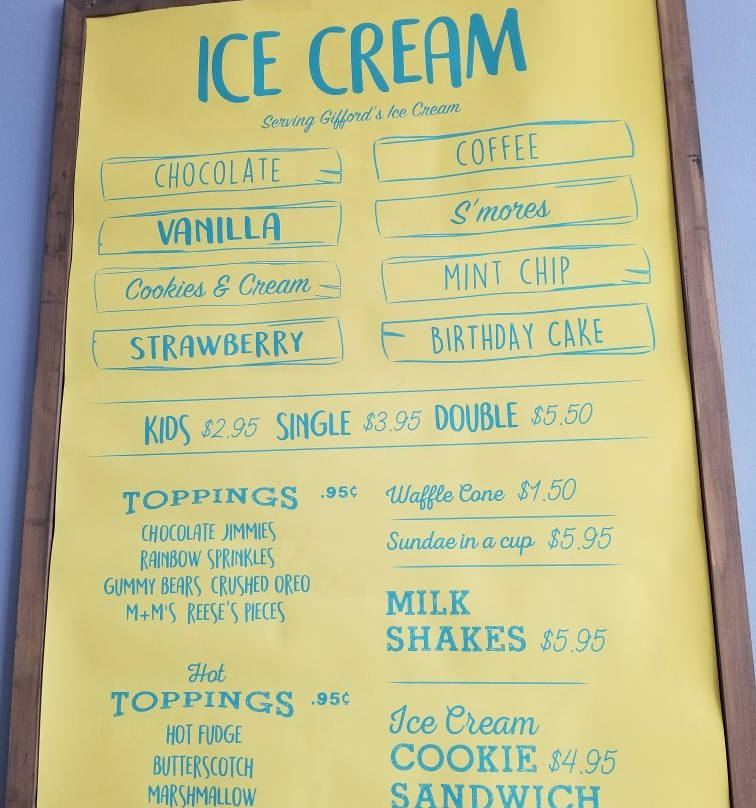 ICE CREAM
Serving Gifford's Ice Cream
CHOCOLATE
VANILLA
Cookies & Cream
STRAWBERRY
COFFEE
S'mores
MINT CHIP
BIRTHDAY CAKE
KIDS $2.95 SINGLE $3.95 DOUBLE $5.50
TOPPINGS .95¢
CHOCOLATE JIMMIES
RAINBOW SPRINKLES
GUMMY BEARS CRUSHED OREO
M+M'S REESE'S PIECES
Hot
TOPPINGS .95¢
HOT FUDGE
BUTTERSCOTCH
MARSHMALLOW
Waffle Cone $1.50
Sundae in a cup $5.95
MILK
SHAKES $5.95
Ice Cream
COOKIE $4.95
SANDWICH